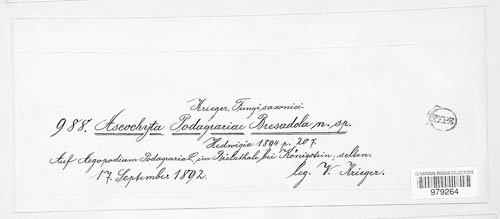 Krieger, Fungi saxonici.
988. Ascochyta Podagrariae Bresadola, n. sp.
Hedwigia 1894 p. 207.
Auf Aegopodium Podagraria L., im Bielathale, bei Königstein, selten.
17. September 1892. leg. W. Krieger.
US NATIONAL FUNGUS COLLECTIONS
979264